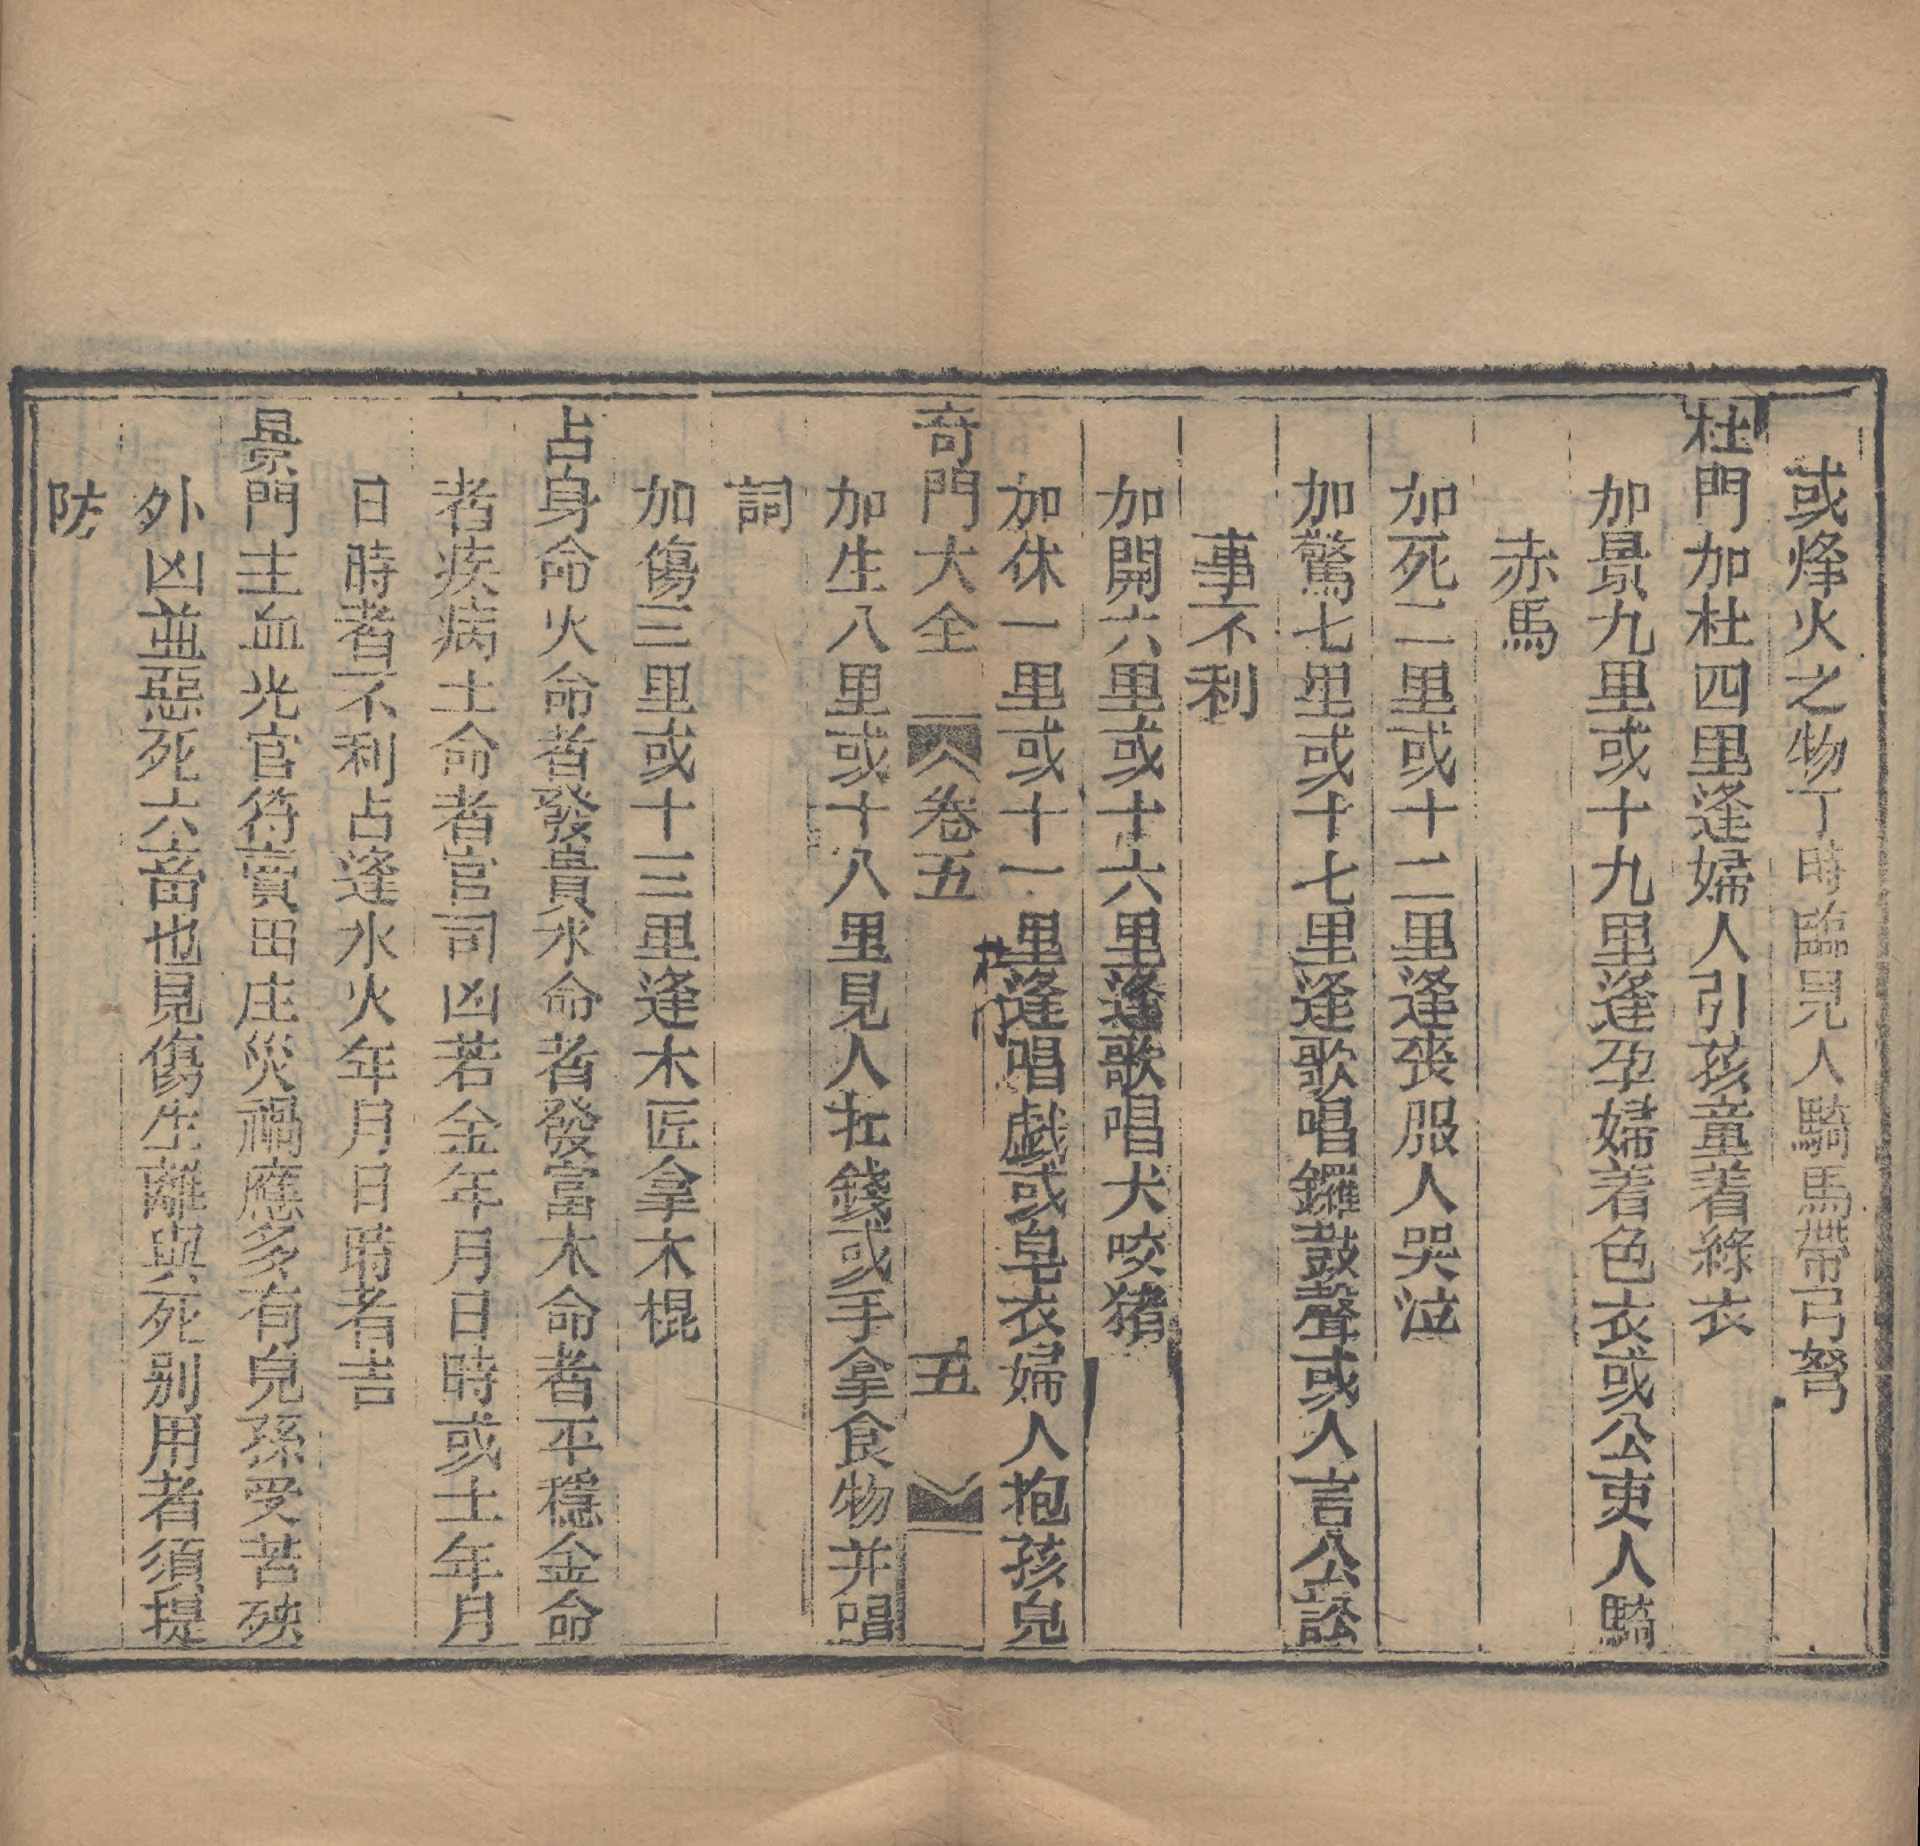 或烽火之物丁時臨見人騎馬帶弓弩
杜門加杜四里逢婦人引孩童着綠衣
加景九里或十九里逢孕婦着色衣或公吏人騎
赤馬
加死二里或十二里逢喪服人哭泣
加驚七里或十七里逢歌唱鑼鼓聲或人言公訟
事不利
加開六里或十六里逢歌唱犬咬猪
加休一里或十一里逢唱戯或皂衣婦人抱孩兒
奇門大全 卷五 五
加生八里或十八里見人扛錢或手拿食物并唱
詞
加傷三里或十三里逢木匠拿木棍
占身命火命者發貴水命者發富木命者平穩金命
者疾病土命者官司凶若金年月日時或土年月
日時者不利占逢水火年月日時者吉
景門主血光官符賣田庄災禍應多有兒孫受苦殃
外凶並惡死六畜也見傷生離與死别用者須提
防